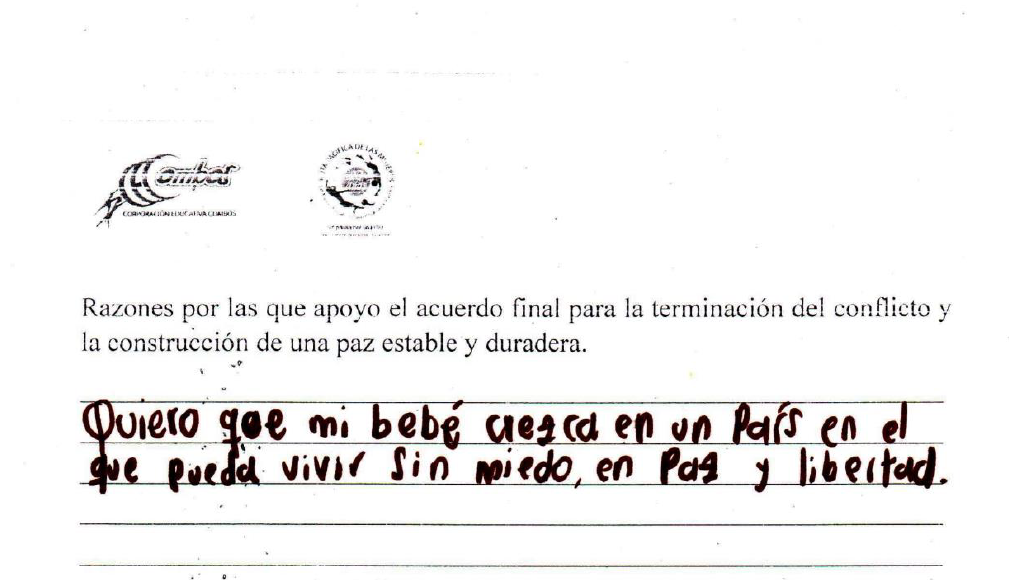 Combos
CORPORACIÓN EDUCATIVA COMBOS
Razones por las que apoyo el acuerdo final para la terminación del conflicto y
la construcción de una paz estable y duradera.
Quiero que mi bebé crezca en un País en el
que pueda vivir sin miedo, en Paz y libertad.